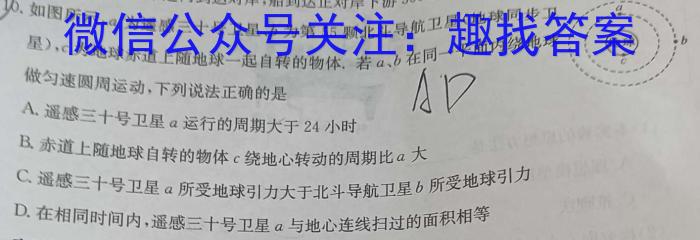 10. 如图所
微信公众号关注：趣找答案
星), c 地球赤道上随地球一起自转的物体. 若 a、b 在同一
做匀速圆周运动,下列说法正确的是
AD
A. 遥感三十号卫星 a 运行的周期大于 24 小时
B. 赤道上随地球自转的物体 c 绕地心转动的周期比 a 大
C. 遥感三十号卫星 a 所受地球引力大于北斗导航卫星 b 所受地球引力
D. 在相同时间内,遥感三十号卫星 a 与地心连线扫过的面积相等
a
c
b